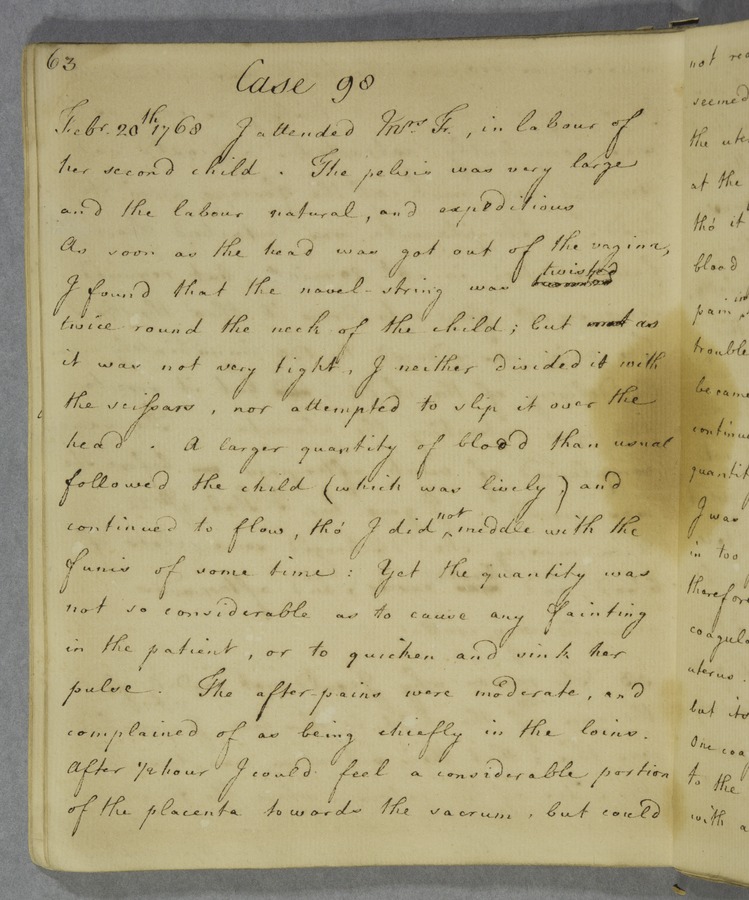 63
Case 98
Febr. 20th 1768 I attended Mrs. Fr., in labour of
her second child. The pelvis was very large
and the labour natural, and expeditious
As soon as the head was got out of the vagina,
twisted
I found that the navel-string was
twice round the neck of the child; but as
it was not very tight, I neither divided it with
the scissars, nor attempted to slip it over the
head. A larger quantity of blood than usual
followed the child (which was lively) and
not
continued to flow, tho' I did meddle with the
funis of some time: Yet the quantity was
not so considerable as to cause any fainting
in the patient, or to quicken and sink her
pulse. The after-pains were moderate, and
complained of as being chiefly in the loins.
After 1/2 hour I could feel a considerable portion
of the placenta towards the sacrum, but could
not
seemed
the ute
at the
tho' it
blood
in
pain
trouble
became
continu
quantit
I was
in too
therefor
coagul
uterus.
but its
One coa
to the
with a